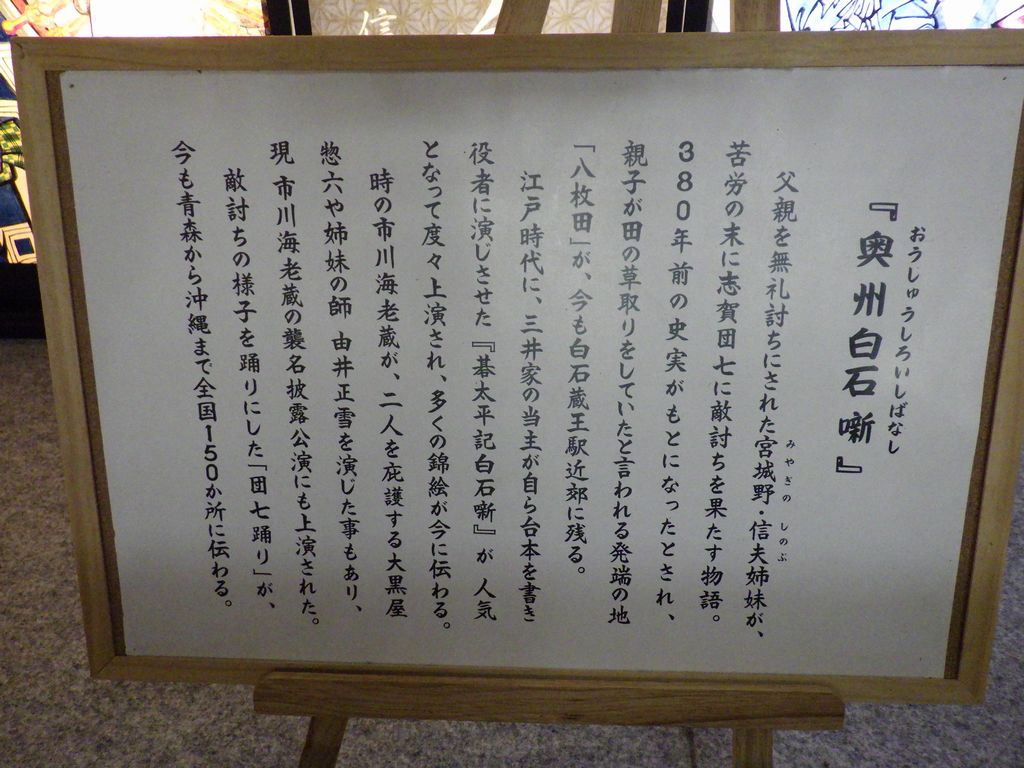 おうしゅうしろいしばなし
『奥州白石噺』
父親を無礼討ちにされた宮城野・信夫姉妹が、
みやぎの しのぶ
苦労の末に志賀団七に敵討ちを果たす物語。
380年前の史実がもとになったとされ、
親子が田の草取りをしていたと言われる発端の地
「八枚田」が、今も白石蔵王駅近郊に残る。
江戸時代に、三井家の当主が自ら台本を書き
役者に演じさせた『碁太平記白石噺』が 人気
となって度々上演され、多くの錦絵が今に伝わる。
時の市川海老蔵が、二人を庇護する大黒屋
惣六や姉妹の師 由井正雪を演じた事もあり、
現 市川海老蔵の襲名披露公演にも上演された。
敵討ちの様子を踊りにした「団七踊り」が、
今も青森から沖縄まで全国150か所に伝わる。
信